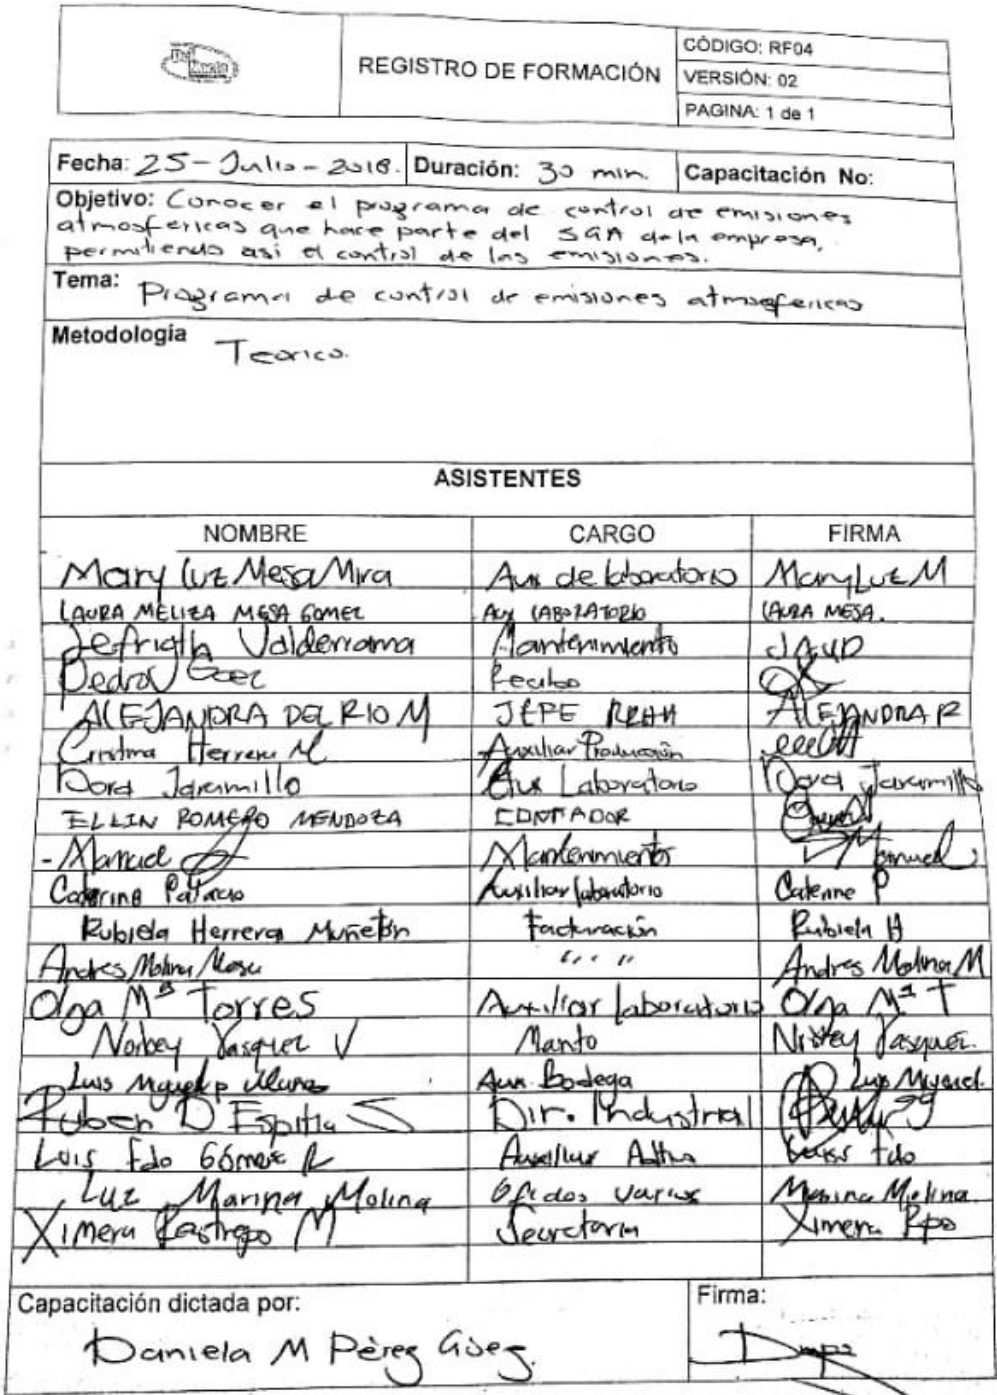 REGISTRO DE FORMACIÓN
CÓDIGO: RF04
VERSIÓN: 02
PAGINA: 1 de 1
Fecha: 25-Julio-2018. Duración: 30 min. Capacitación No:
Objetivo: Conocer el programa de control de emisiones
atmosfericas que hace parte del SGA de la empresa,
permitiendo asi el control de las emisiones.
Tema: Programa de control de emisiones atmosfericas
Metodología Teorico.
ASISTENTES
NOMBRE CARGO FIRMA
Mary Luz Mesa Mira Aux de laboratorio Mary Luz M
LAURA MELIZA MESA GOMEZ AUX LABORATORIO LAURA MESA.
Valderrama Mantenimiento
Pedro Goez Recibo
ALEJANDRA DEL RIO M JEFE RRHH ALEJANDRA R
Cristina Herrera M Auxiliar Producción
Dora Jaramillo Aux Laboratorio Dora Jaramillo
ELLIN ROMERO MENDOZA CONTADOR
- Manuel Mantenimiento Manuel
Caterine Palacio Auxiliar laboratorio Caterine P
Rubiela Herrera Muñetón Facturación Rubiela H
Andres Molina Mesa " " " Andres Molina M
Olga Mª Torres Auxiliar laboratorio Olga Mª T
Norbey Vasquez V Manto Norbey Vasquez.
Luis Miguel Aux. Bodega Luis Miguel
Ruben D Espitia S Dir. Industrial
Luis Fdo Gómez R Auxiliar Adtivo Luis Fdo
Luz Marina Molina Oficios varios Marina Molina
Ximena Restrepo M Secretaria Ximena Rpo
Capacitación dictada por: Firma:
Daniela M Pérez Góez.